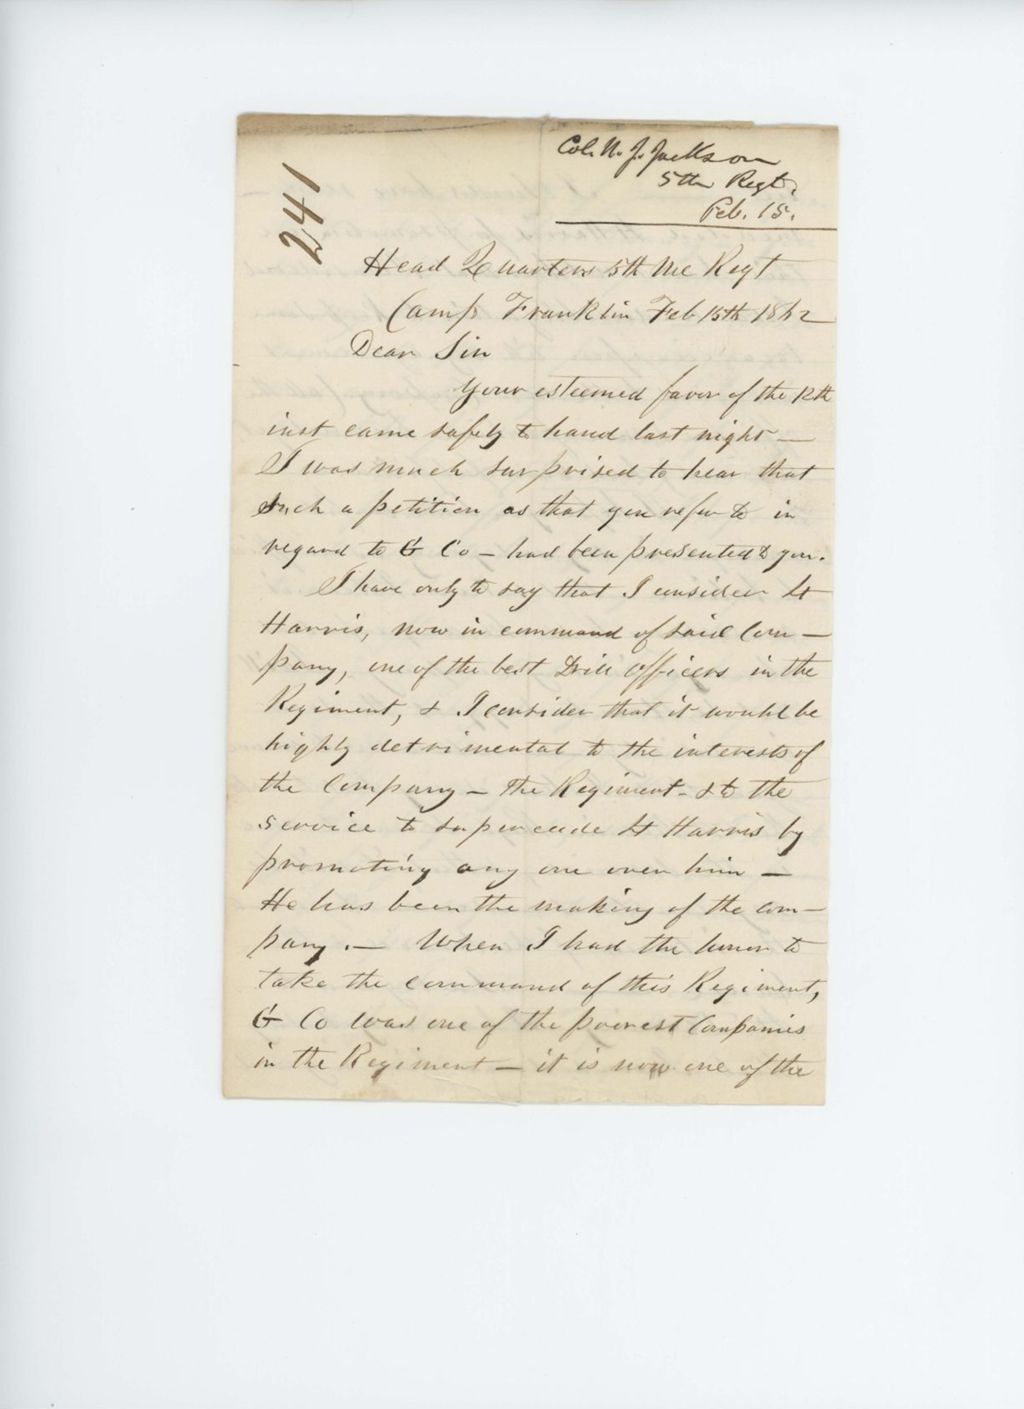 241
Col. N. J. Jackson
5th Regt.
Feb. 15.
Head Quarters 5th Me Regt
Camp Franklin Feb 15th 1862
Dear Sir
Your esteemed favor of the 12th
inst came safely to hand last night —
I was much surprised to hear that
such a petition as that you refer to in
regard to G Co — had been presented to you.
I have only to say that I consider Lt
Harris, now in command of said Com—
pany, one of the best Drill officers in the
Regiment, & I consider that it would be
highly detrimental to the interests of
the Company — the Regiment — & to the
service to supercede Lt Harris by
promoting any one over him —
He has been the making of the com—
pany. — When I had the honor to
take the command of this Regiment,
G Co was one of the poorest Companies
in the Regiment — it is now one of the